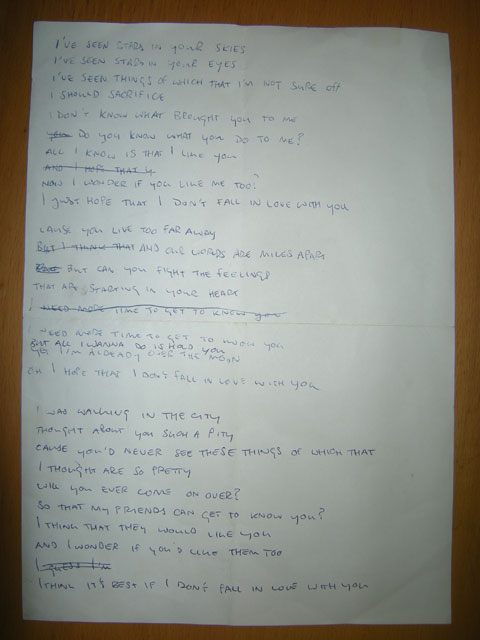 I'VE SEEN STARS IN YOUR SKIES
I'VE SEEN STARS IN YOUR EYES
I'VE SEEN THINGS OF WHICH THAT I'M NOT SURE OF
I SHOULD SACRIFICE
I DON'T KNOW WHAT BROUGHT YOU TO ME
DO YOU KNOW WHAT YOU DO TO ME?
ALL I KNOW IS THAT I LIKE YOU
AND I HOPE THAT Y
NOW I WONDER IF YOU LIKE ME TOO?
I JUST HOPE THAT I DON'T FALL IN LOVE WITH YOU
CAUSE YOU LIVE TOO FAR AWAY
BUT I THINK THAT AND OUR WORDS ARE MILES APART
BUT CAN YOU FIGHT THE FEELINGS
THAT ARE STARTING IN YOUR HEART
I NEED MORE TIME TO GET TO KNOW YOU
I NEED MORE TIME TO GET TO KNOW YOU
BUT ALL I WANNA DO IS HOLD YOU
YET I'M ALREADY OVER THE MOON
OH I HOPE THAT I DON'T FALL IN LOVE WITH YOU
I WAS WALKING IN THE CITY
THOUGHT ABOUT YOU SUCH A PITY
CAUSE YOU'D NEVER SEE THESE THINGS OF WHICH THAT
I THOUGHT ARE SO PRETTY
WILL YOU EVER COME ON OVER?
SO THAT MY FRIENDS CAN GET TO KNOW YOU?
I THINK THAT THEY WOULD LIKE YOU
AND I WONDER IF YOU'D LIKE THEM TOO
I GUESS I'M
I THINK IT'S BEST IF I DON'T FALL IN LOVE WITH YOU